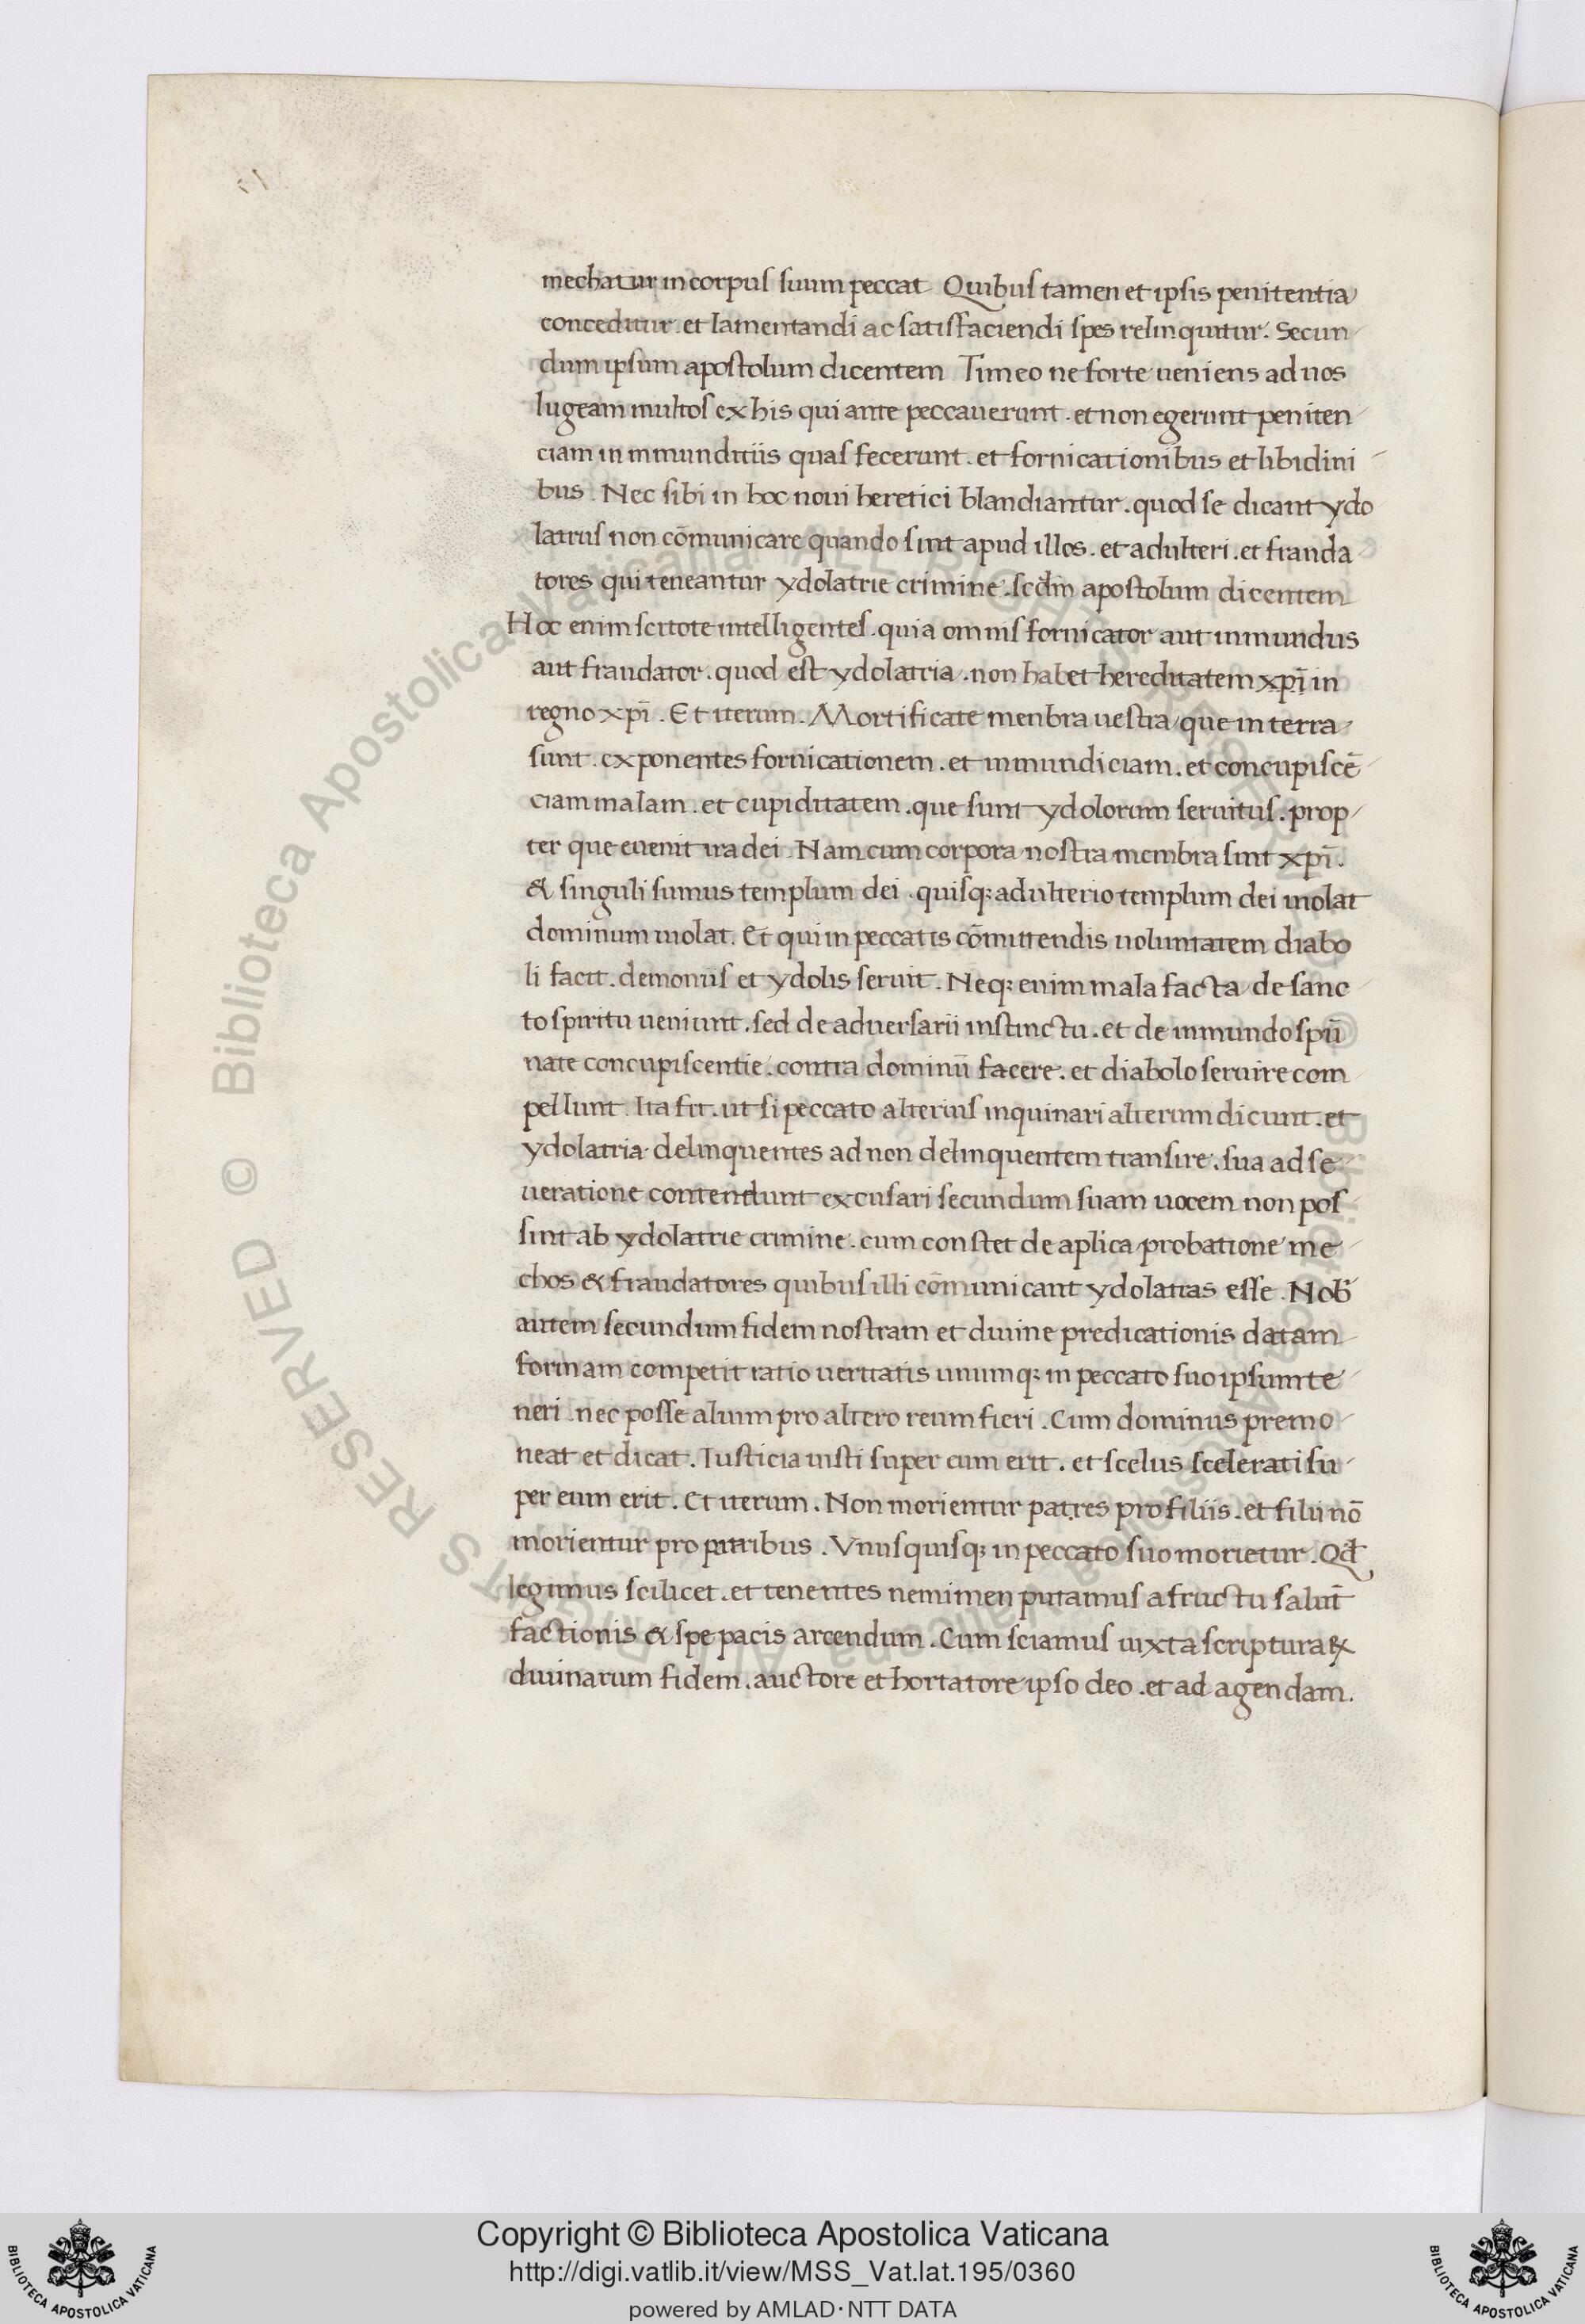 mechatur in corpus suum peccat Quibus tamen et ipsis penitentia
conceditur. et lamentandi ac satisfaciendi spes relinquitur. Secun
dum ipsum apostolum dicentem Timeo ne forte ueniens ad uos
lugeam multos ex his qui ante peccauerunt. et non egerunt peniten
ciam in inmunditiis quas fecerunt. et fornicationibus et libidini
bus. Nec sibi in hoc noui heretici blandiantur. quod se dicant ydo
latris non cōmunicare quando sint apud illos. et adulteri. et frauda
tores qui teneantur ydolatrie crimine. scdm̄ apostolum dicentem
Hoc enim scitote intelligentes. quia omnis fornicator aut inmundus
aut fraudator. quod est ydolatria. non habet hereditatem xpī in
regno xpī. Et iterum. Mortificate menbra uestra que in terra
sunt. exponentes fornicationem. et inmundiciam. et concupiscē
ciam malam. et cupiditatem. que sunt ydolorum seruitus. prop
ter que euenit ira dei. Nam cum corpora nostra membra sint xpī.
& singuli sumus templum dei. quisq; adulterio templum dei uiolat
dominum uiolat. Et qui in peccatis cōmittendis uoluntatem diabo
li facit. demoniis et ydolis seruit. Neq; enim mala facta de sanc
to spiritu ueniunt. sed de aduersarii instinctu. et de inmundo spū
nate concupiscentie. contra dominū facere. et diabolo seruire com
pellunt. Ita fit. ut si peccato alterius inquinari alterum dicunt. et
ydolatria delinquentes ad non delinquentem transire. sua adse
ueratione contendunt excusari secundum suam uocem non pos
sint ab ydolatrie crimine. cum constet de aplica probatione me
chos & fraudatores quibus illi cōmunicant ydolatras esse. Nob̄
autem secundum fidem nostram et diuine predicationis datam
formam competit ratio ueritatis unumq; in peccato suo ipsum te
neri. nec posse alium pro altero reum fieri. Cum dominus premo
neat et dicat. Iusticia iusti super eum erit. et scelus scelerati su
per eum erit. Et iterum. Non morientur patres pro filiis. et filii nō
morientur pro patribus. Vnusquisq; in peccato suo morietur. Qđ
legimus scilicet. et tenentes neminen putamus a fructu salut̄
factionis & spe pacis arcendum. Cum sciamus iuxta scripturaꝝ
diuinarum fidem. auctore et hortatore ipso deo. et ad agendam.
© Biblioteca Apostolica Vaticana ALL RIGHTS RESERVED
Copyright © Biblioteca Apostolica Vaticana
http://digi.vatlib.it/view/MSS_Vat.lat.195/0360
powered by AMLAD·NTT DATA
BIBLIOTECA APOSTOLICA VATICANA
BIBLIOTECA APOSTOLICA VATICANA